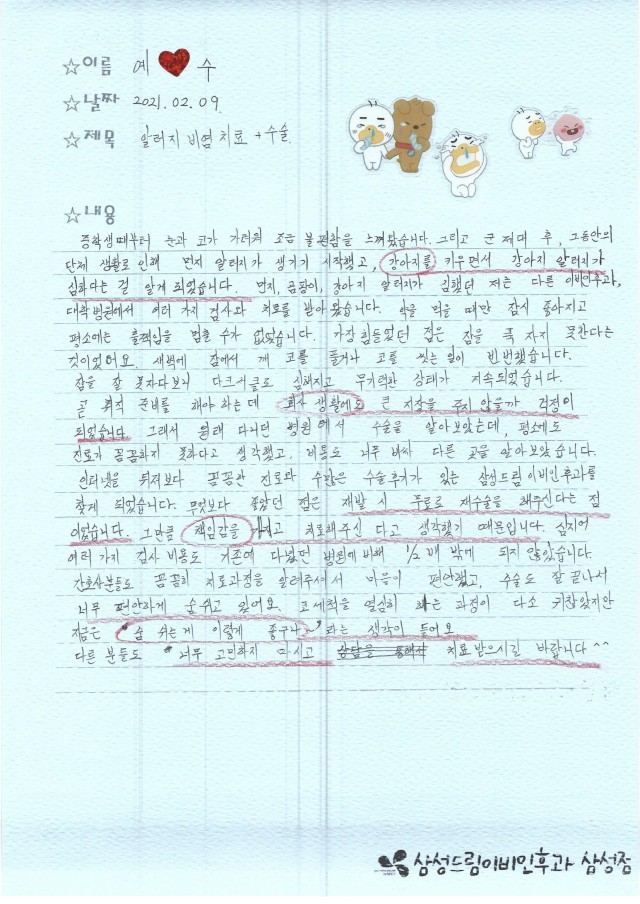 ☆이름 예❤수
☆날짜 2021.02.09.
☆제목 알러지 비염 치료 + 수술.
☆내용
중학생때부터 눈과 코가 가려워 조금 불편함을 느껴왔습니다. 그리고 군 제대 후, 그동안의
단체 생활로 인해 먼지 알러지가 생기기 시작했고, 강아지를 키우면서 강아지 알러지가
심하다는 걸 알게 되었습니다. 먼지, 곰팡이, 강아지 알러지가 심했던 저는 다른 이비인후과,
대학병원에서 여러 가지 검사와 치료를 받아왔습니다. 약을 먹을 때만 잠시 좋아지고
평소에는 훌쩍임을 멈출 수가 없었습니다. 가장 힘들었던 점은 잠을 푹 자지 못한다는
것이었어요. 새벽에 잠에서 깨 코를 풀거나 코를 씻는 일이 빈번했습니다.
잠을 잘 못자다보니 다크서클도 심해지고 무기력한 상태가 지속되었습니다.
곧 취직 준비를 해야 하는데 회사 생활에도 큰 지장을 주지 않을까 걱정이
되었습니다. 그래서 원래 다니던 병원에서 수술을 알아보았는데, 평소에도
진료가 꼼꼼하지 못하다고 생각했고, 비용도 너무 비싸 다른 곳을 알아보았습니다.
인터넷을 뒤져보다 꼼꼼한 진료와 수많은 수술후기가 있는 삼성드림이비인후과를
찾게 되었습니다. 무엇보다 좋았던 점은 재발 시 무료로 재수술을 해주신다는 점
이었습니다. 그만큼 책임감을 가지고 치료해주신다고 생각했기 때문입니다. 심지어
여러 가지 검사 비용도 기존에 다녔던 병원에 비해 1/2배 밖에 되지 않았습니다.
간호사분들도 꼼꼼히 치료과정을 알려주셔서 마음이 편안했고, 수술도 잘 끝나서
너무 편안하게 숨쉬고 있어요. 코세척을 열심히 하는 과정이 다소 귀찮았지만
지금은 "숨 쉬는게 이렇게 좋구나" 라는 생각이 들어요
다른 분들도 너무 고민하지 마시고 치료 받으시길 바랍니다^^
삼성드림이비인후과 삼성점